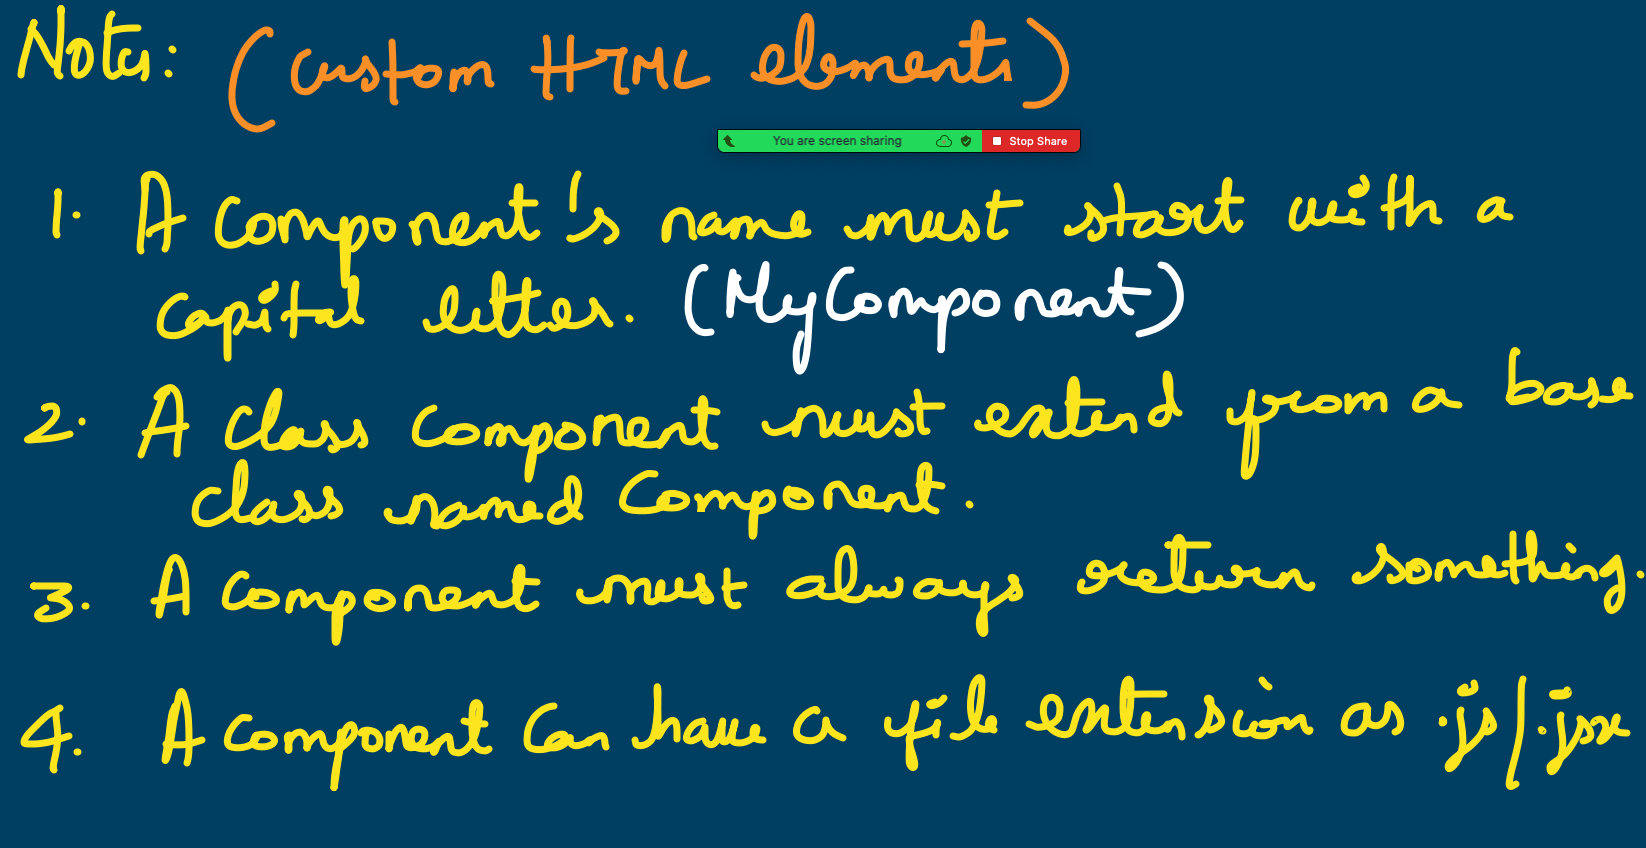 Notes: (Custom HTML elements)
You are screen sharing Stop Share
1. A component's name must start with a
capital letter. (MyComponent)
2. A class component must extend from a base
class named Component.
3. A component must always return something.
4. A component can have a file extension as .js/.jsx